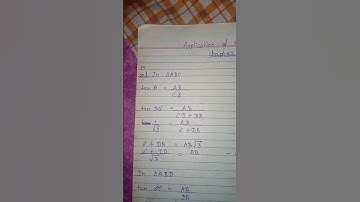 Application of
Chapter
In ΔABC
tan θ = AB
CB
tan 30° = AB
CD + DB
1 = AB
√3 x + DB
x + DB = AB√3
x + DB = AB
√3
In ΔABD
tan = AB
DB